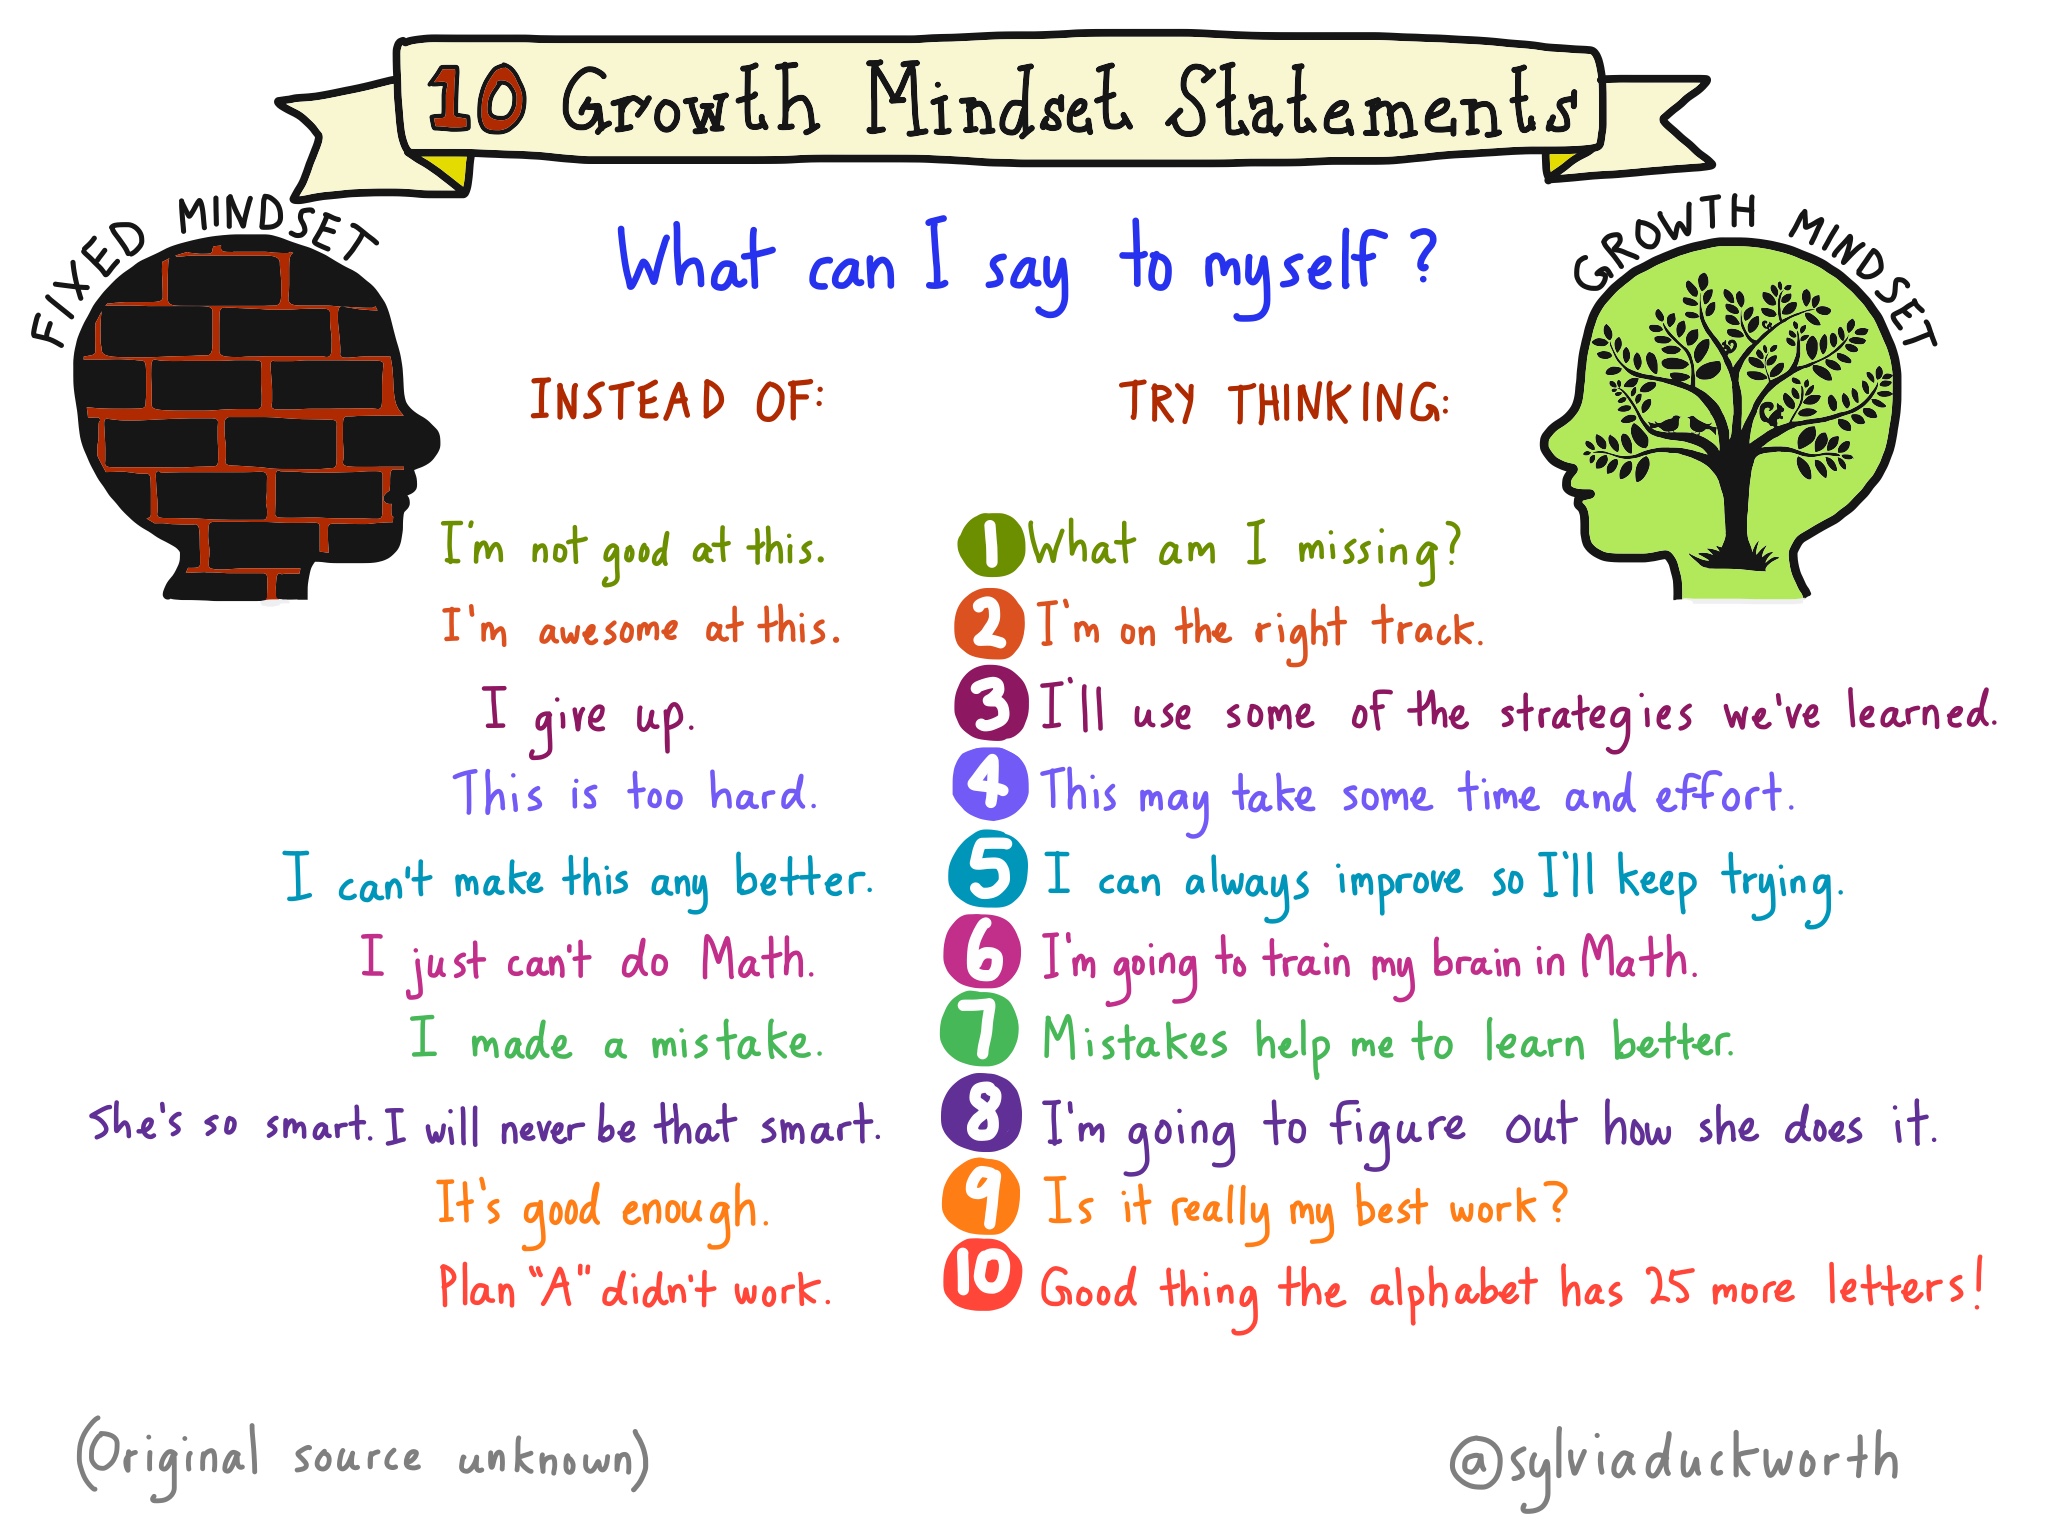 10 Growth Mindset Statements
FIXED MINDSET
GROWTH MINDSET
What can I say to myself?
INSTEAD OF:
TRY THINKING:
I'm not good at this. 1 What am I missing?
I'm awesome at this. 2 I'm on the right track.
I give up. 3 I'll use some of the strategies we've learned.
This is too hard. 4 This may take some time and effort.
I can't make this any better. 5 I can always improve so I'll keep trying.
I just can't do Math. 6 I'm going to train my brain in Math.
I made a mistake. 7 Mistakes help me to learn better.
She's so smart. I will never be that smart. 8 I'm going to figure out how she does it.
It's good enough. 9 Is it really my best work?
Plan "A" didn't work. 10 Good thing the alphabet has 25 more letters!
(Original source unknown)
@sylviaduckworth